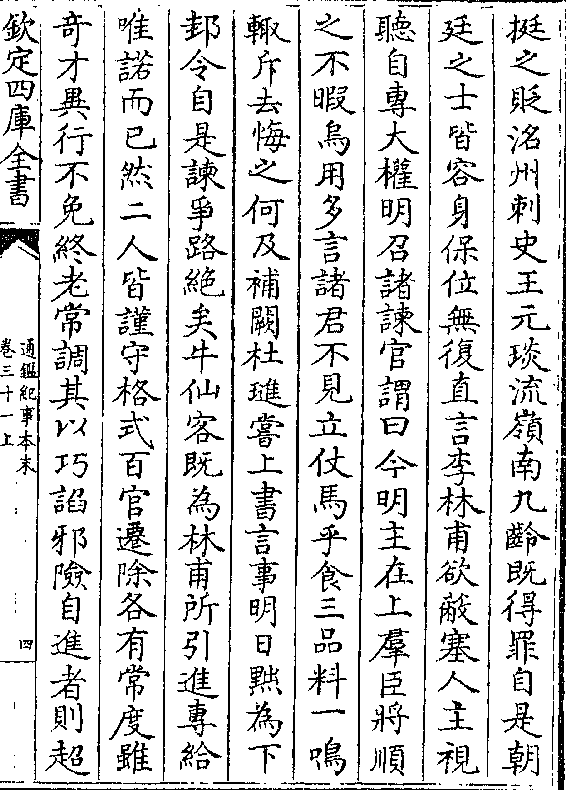 挺之貶洺州刺史王元琰流嶺南九齡既得罪自是朝
廷之士皆容身保位無復直言李林甫欲蔽塞人主視
聽自專大權明召諸諫官謂曰今明主在上羣臣將順
之不暇烏用多言諸君不見立仗馬乎食三品料一鳴
輙斥去悔之何及補闕杜璡嘗上書言事明日黜為下
邽令自是諫爭路絶矣牛仙客既為林甫所引進專給
唯諾而已然二人皆謹守格式百官遷除各有常度雖
奇才異行不免終老常調其以巧諂邪險自進者則超
欽定四庫全書
通鑑紀事本末
卷三十一上
四